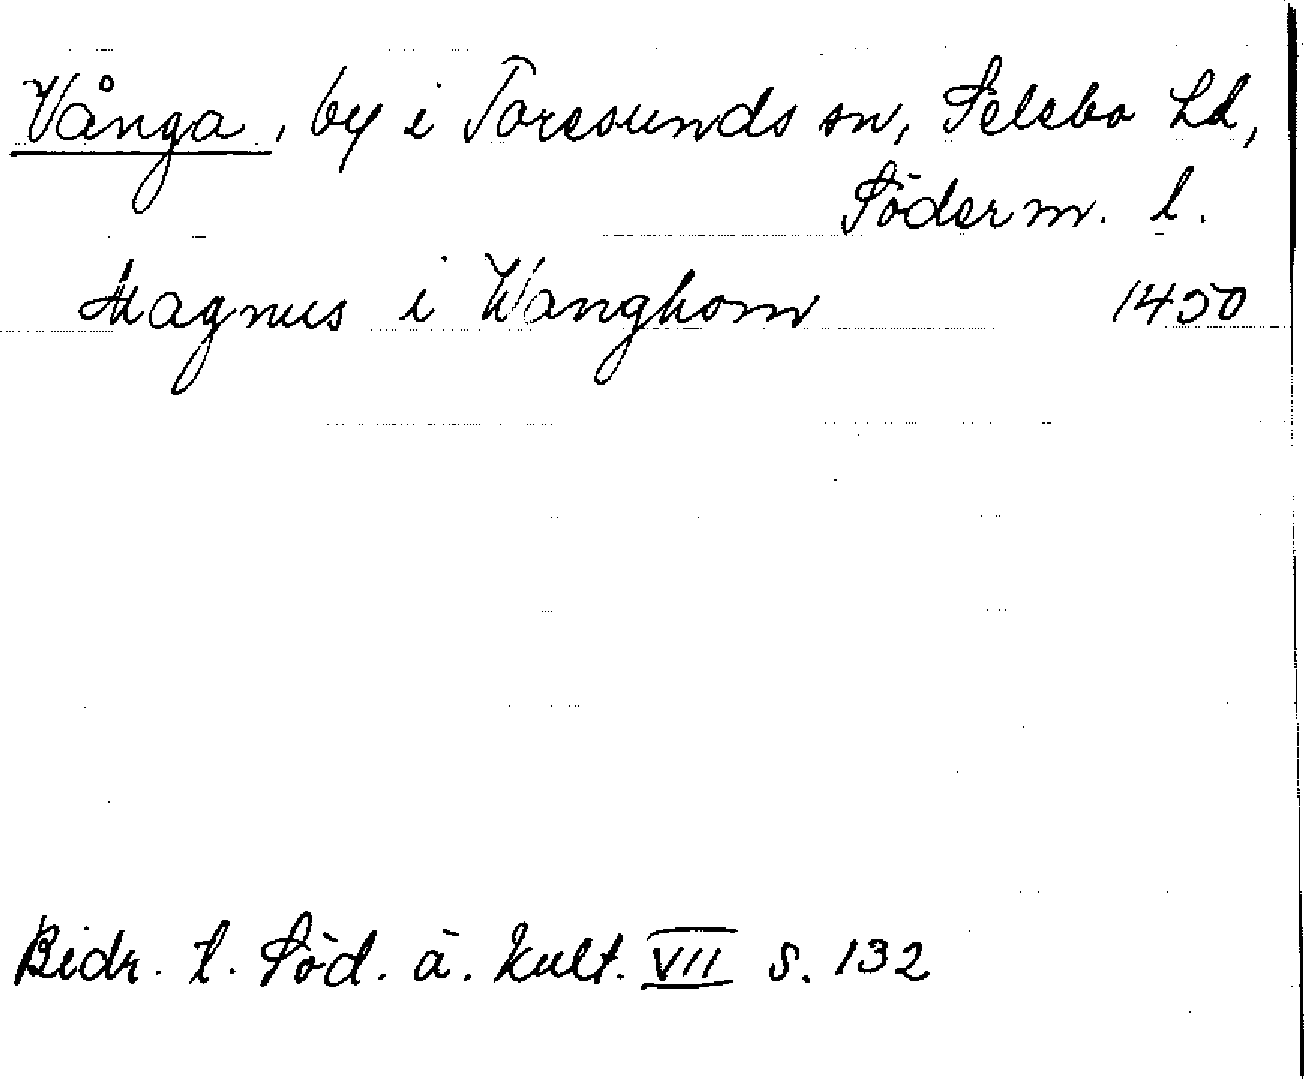 Vånga, by i Toresunds sn, Selebo hd,
Söderm. l.
Magnus i Wanghom 1450
Bidr. t. Söd. ä. kult. VII s. 132